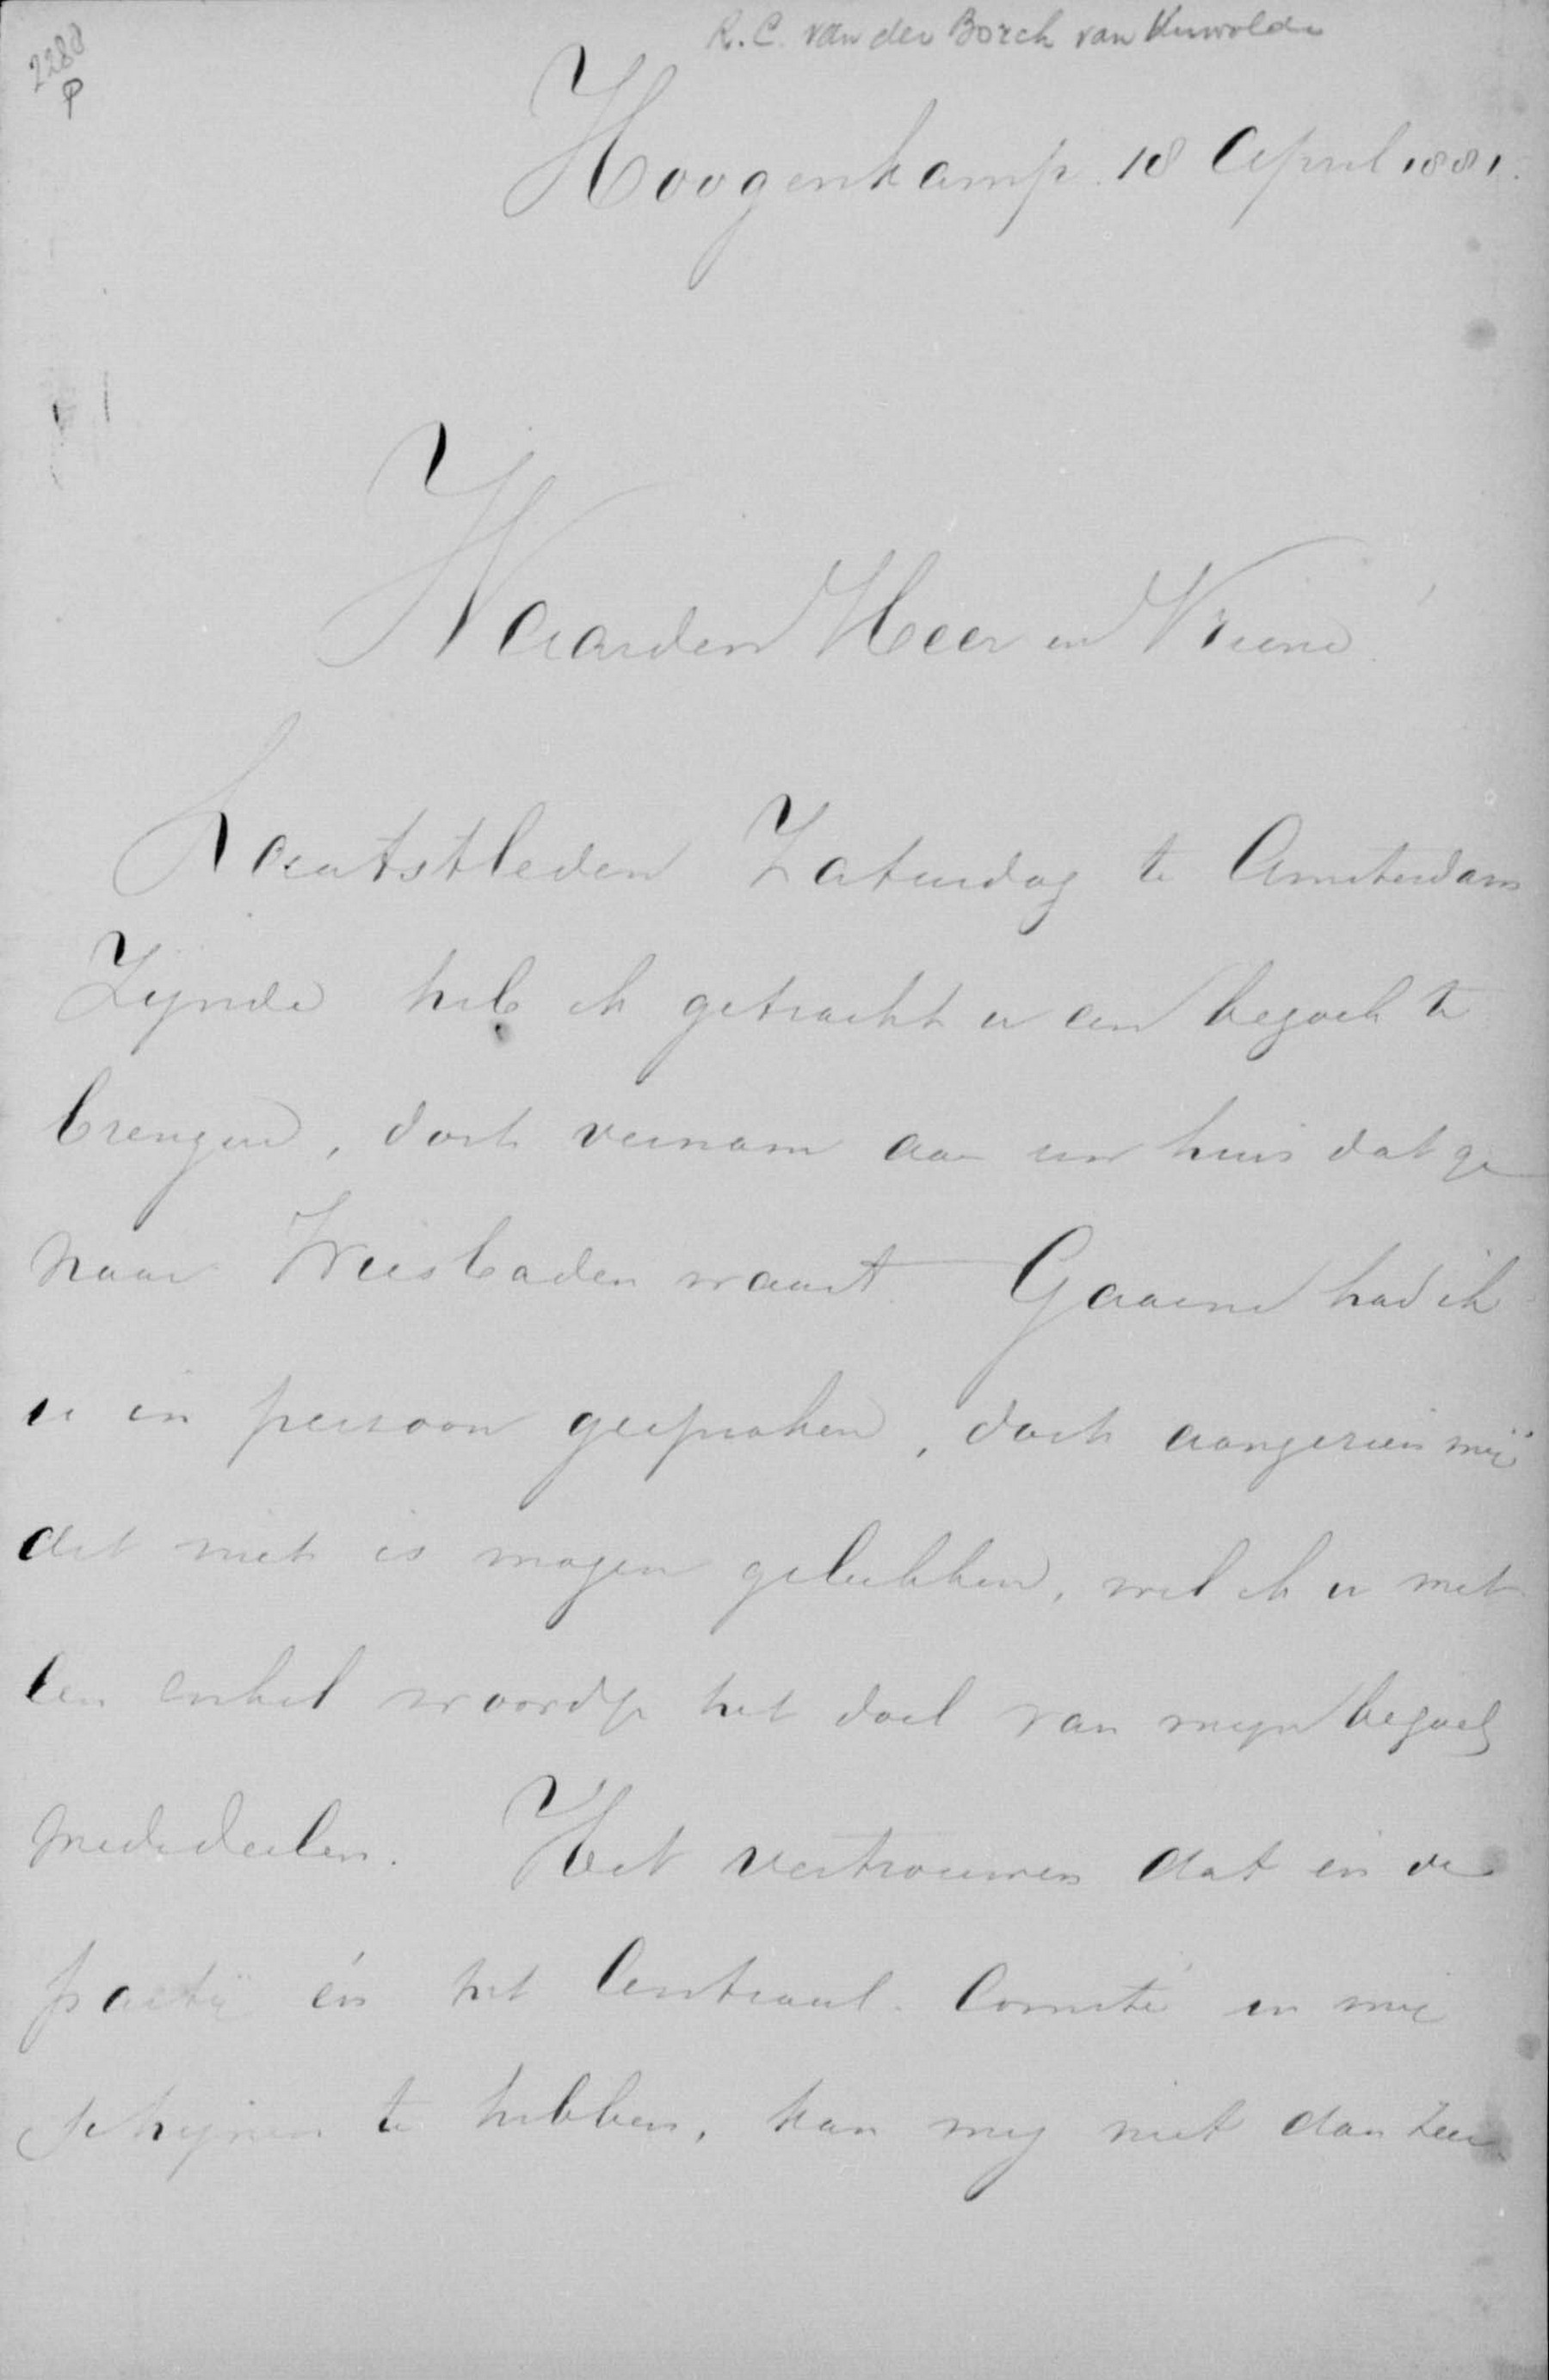 2288
P
R. C. van der Borch van Verwolde
Hoogenkamp. 18 April 1881.
Waarden Heer en Vriend
Laatstleden Zaturdag te Amsterdam
Zynde heb ik getracht u een bezoek te
brengen, doch vernam aan uw huis dat ge
naar Wiesbaden waart. Gaarne had ik
u in persoon gesproken, doch aangezien mij
dit niet is mogen gelukken, wil ik u met
een enkel woordje het doel van mijn bezoek
mededeelen. Het vertrouwen dat èn de
partij èn het Centraal Comité in mij
schijnen te hebben, kan mij niet dan zeer